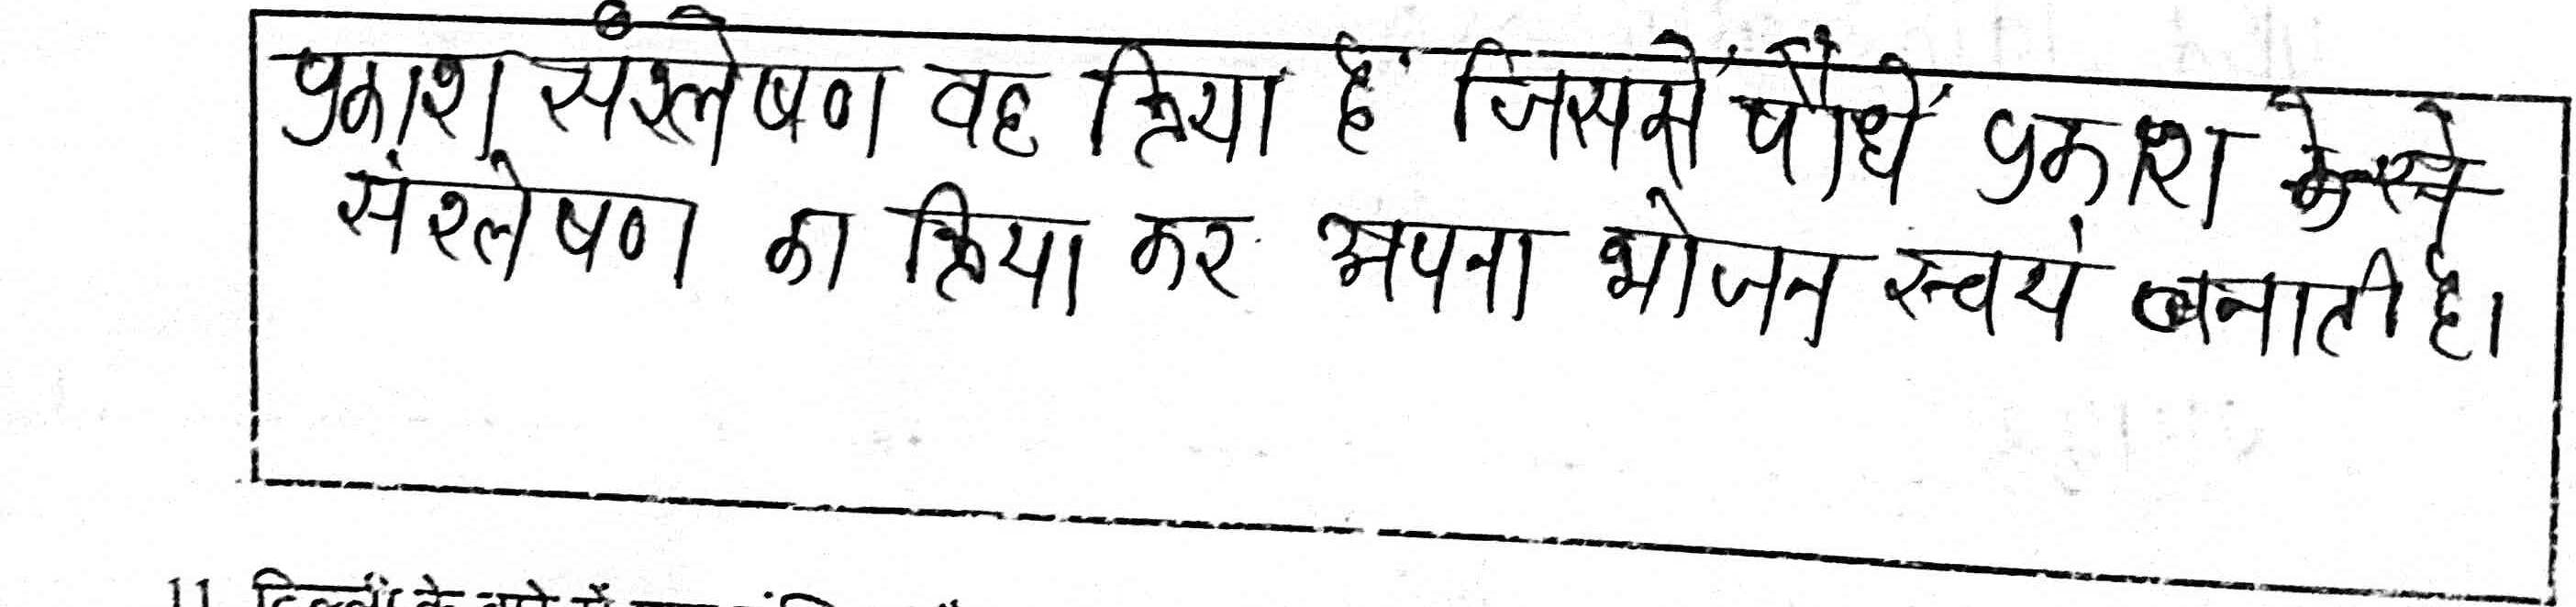 प्रकाश संश्लेषण वह क्रिया है जिसमें पौधें प्रकाश
संश्लेषण का क्रिया कर अपना भोजन स्वयं बनाती है।
11